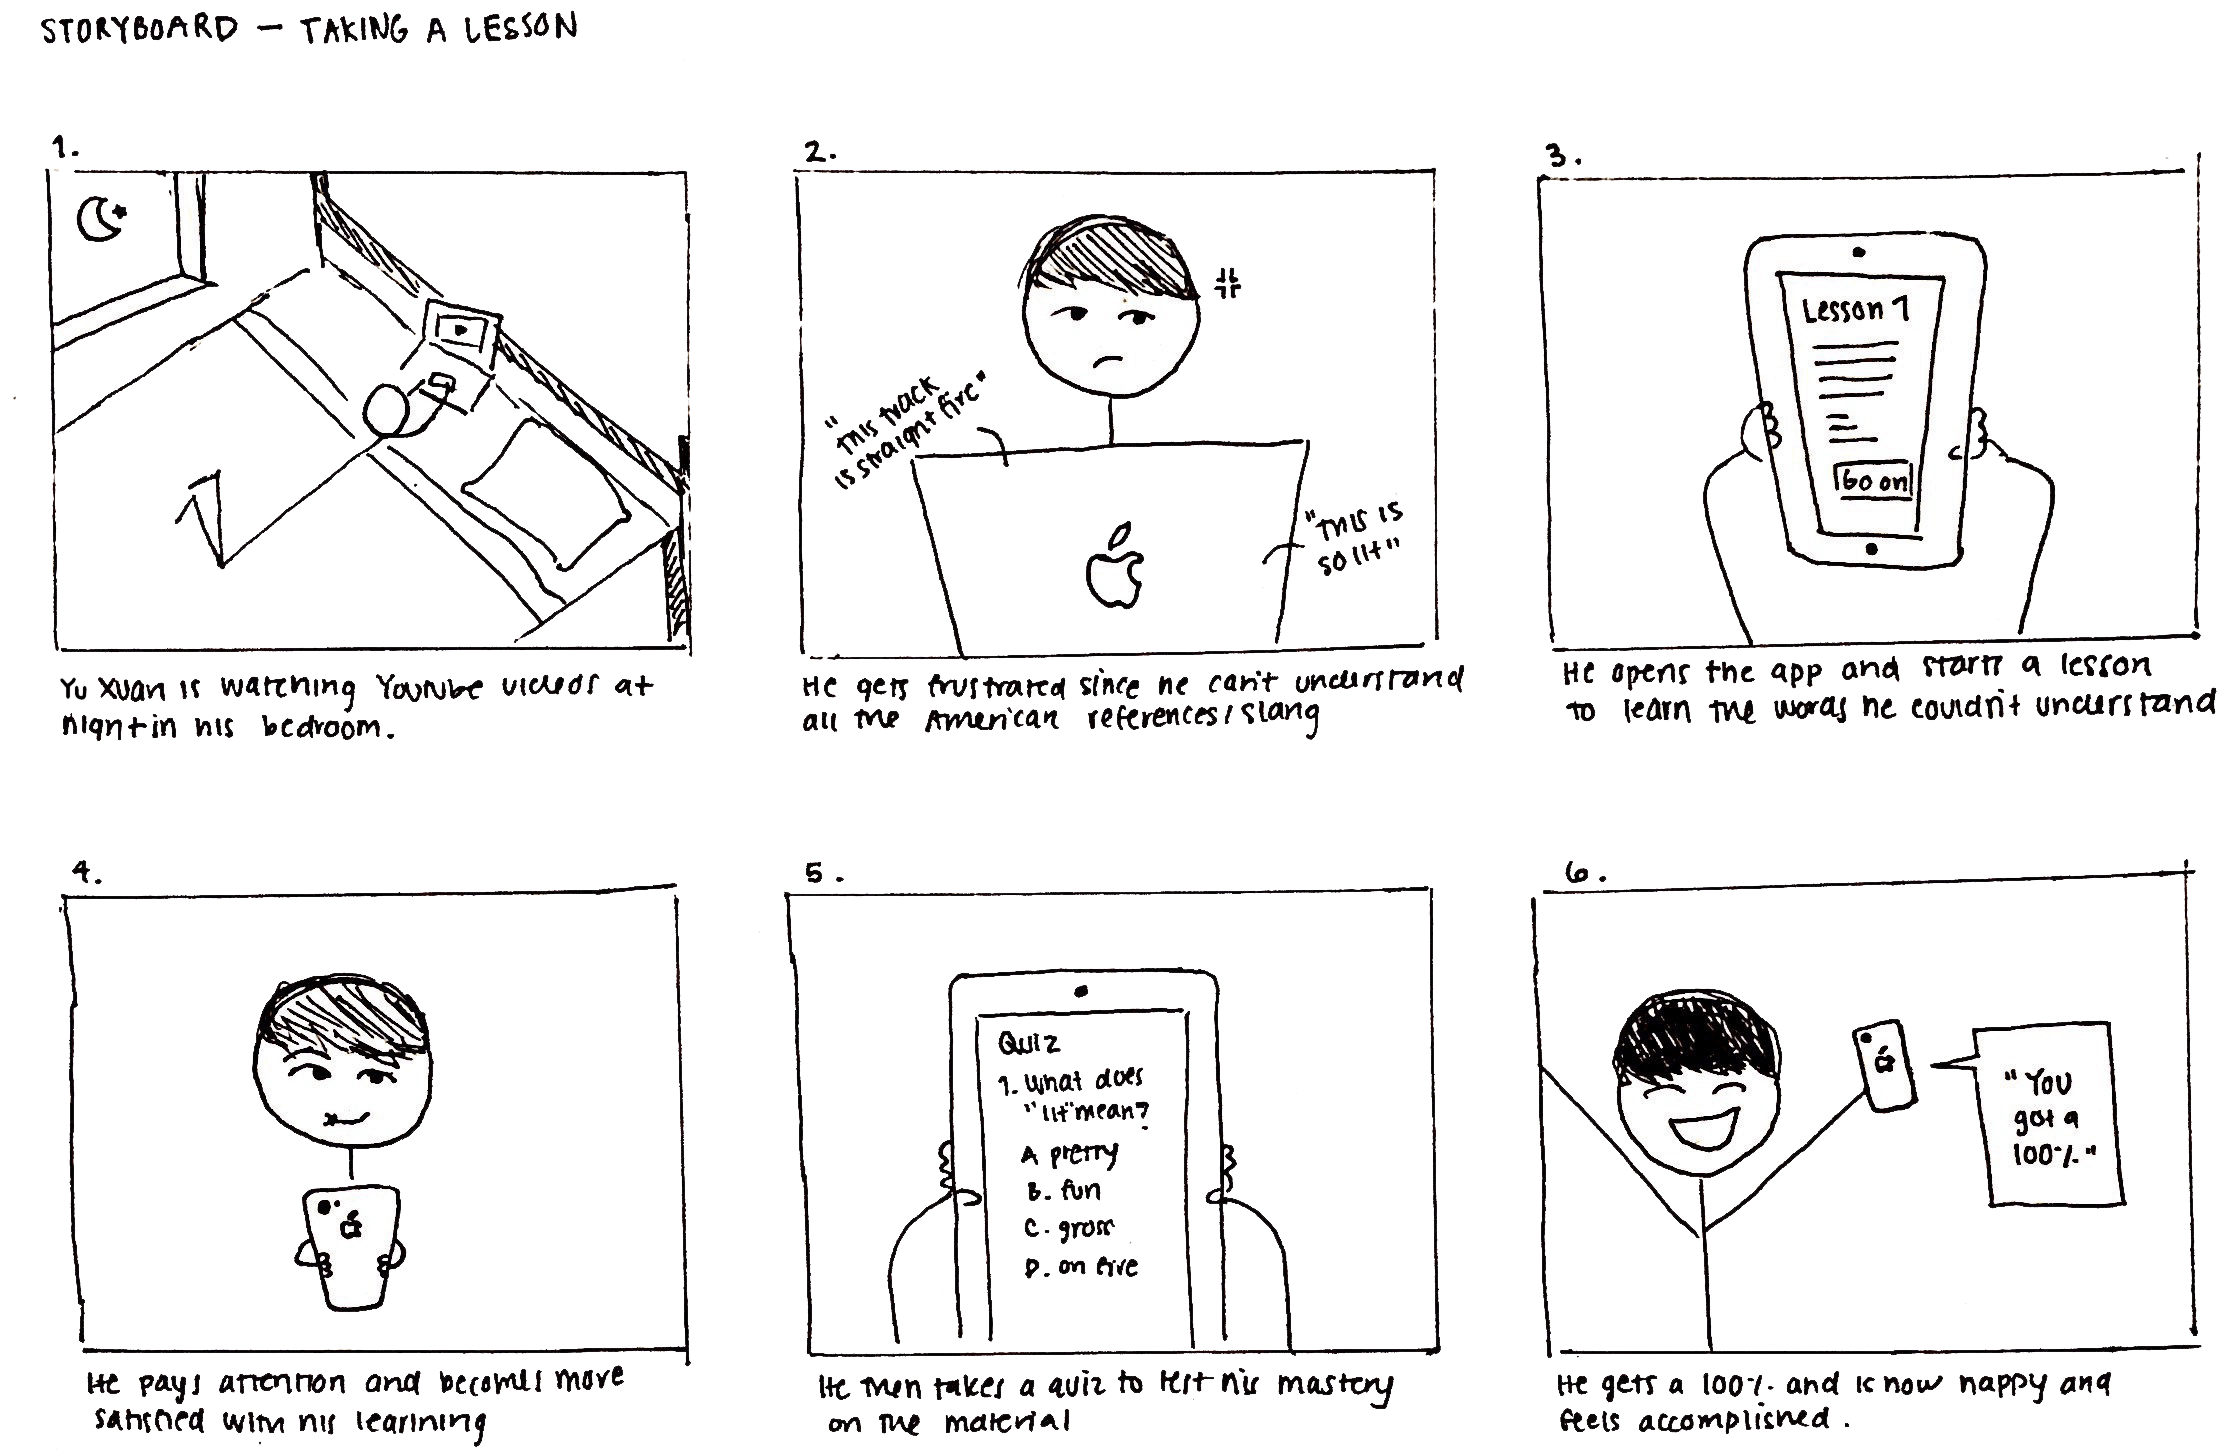 STORYBOARD — TAKING A LESSON
1.
Yu Xuan is watching Youtube videos at
night in his bedroom.
2.
"this track
is straight fire"
"this is
so lit"
He gets frustrated since he can't understand
all the American references/slang
3.
Lesson 1
Go on
He opens the app and starts a lesson
to learn the words he couldn't understand
4.
He pays attention and becomes more
satisfied with his learining
5.
Quiz
1. What does
"lit" mean?
A pretty
B. fun
C. gross
D. on fire
He then takes a quiz to test his mastery
on the material
6.
"You
got a
100%"
He gets a 100% and is now happy and
feels accomplished.